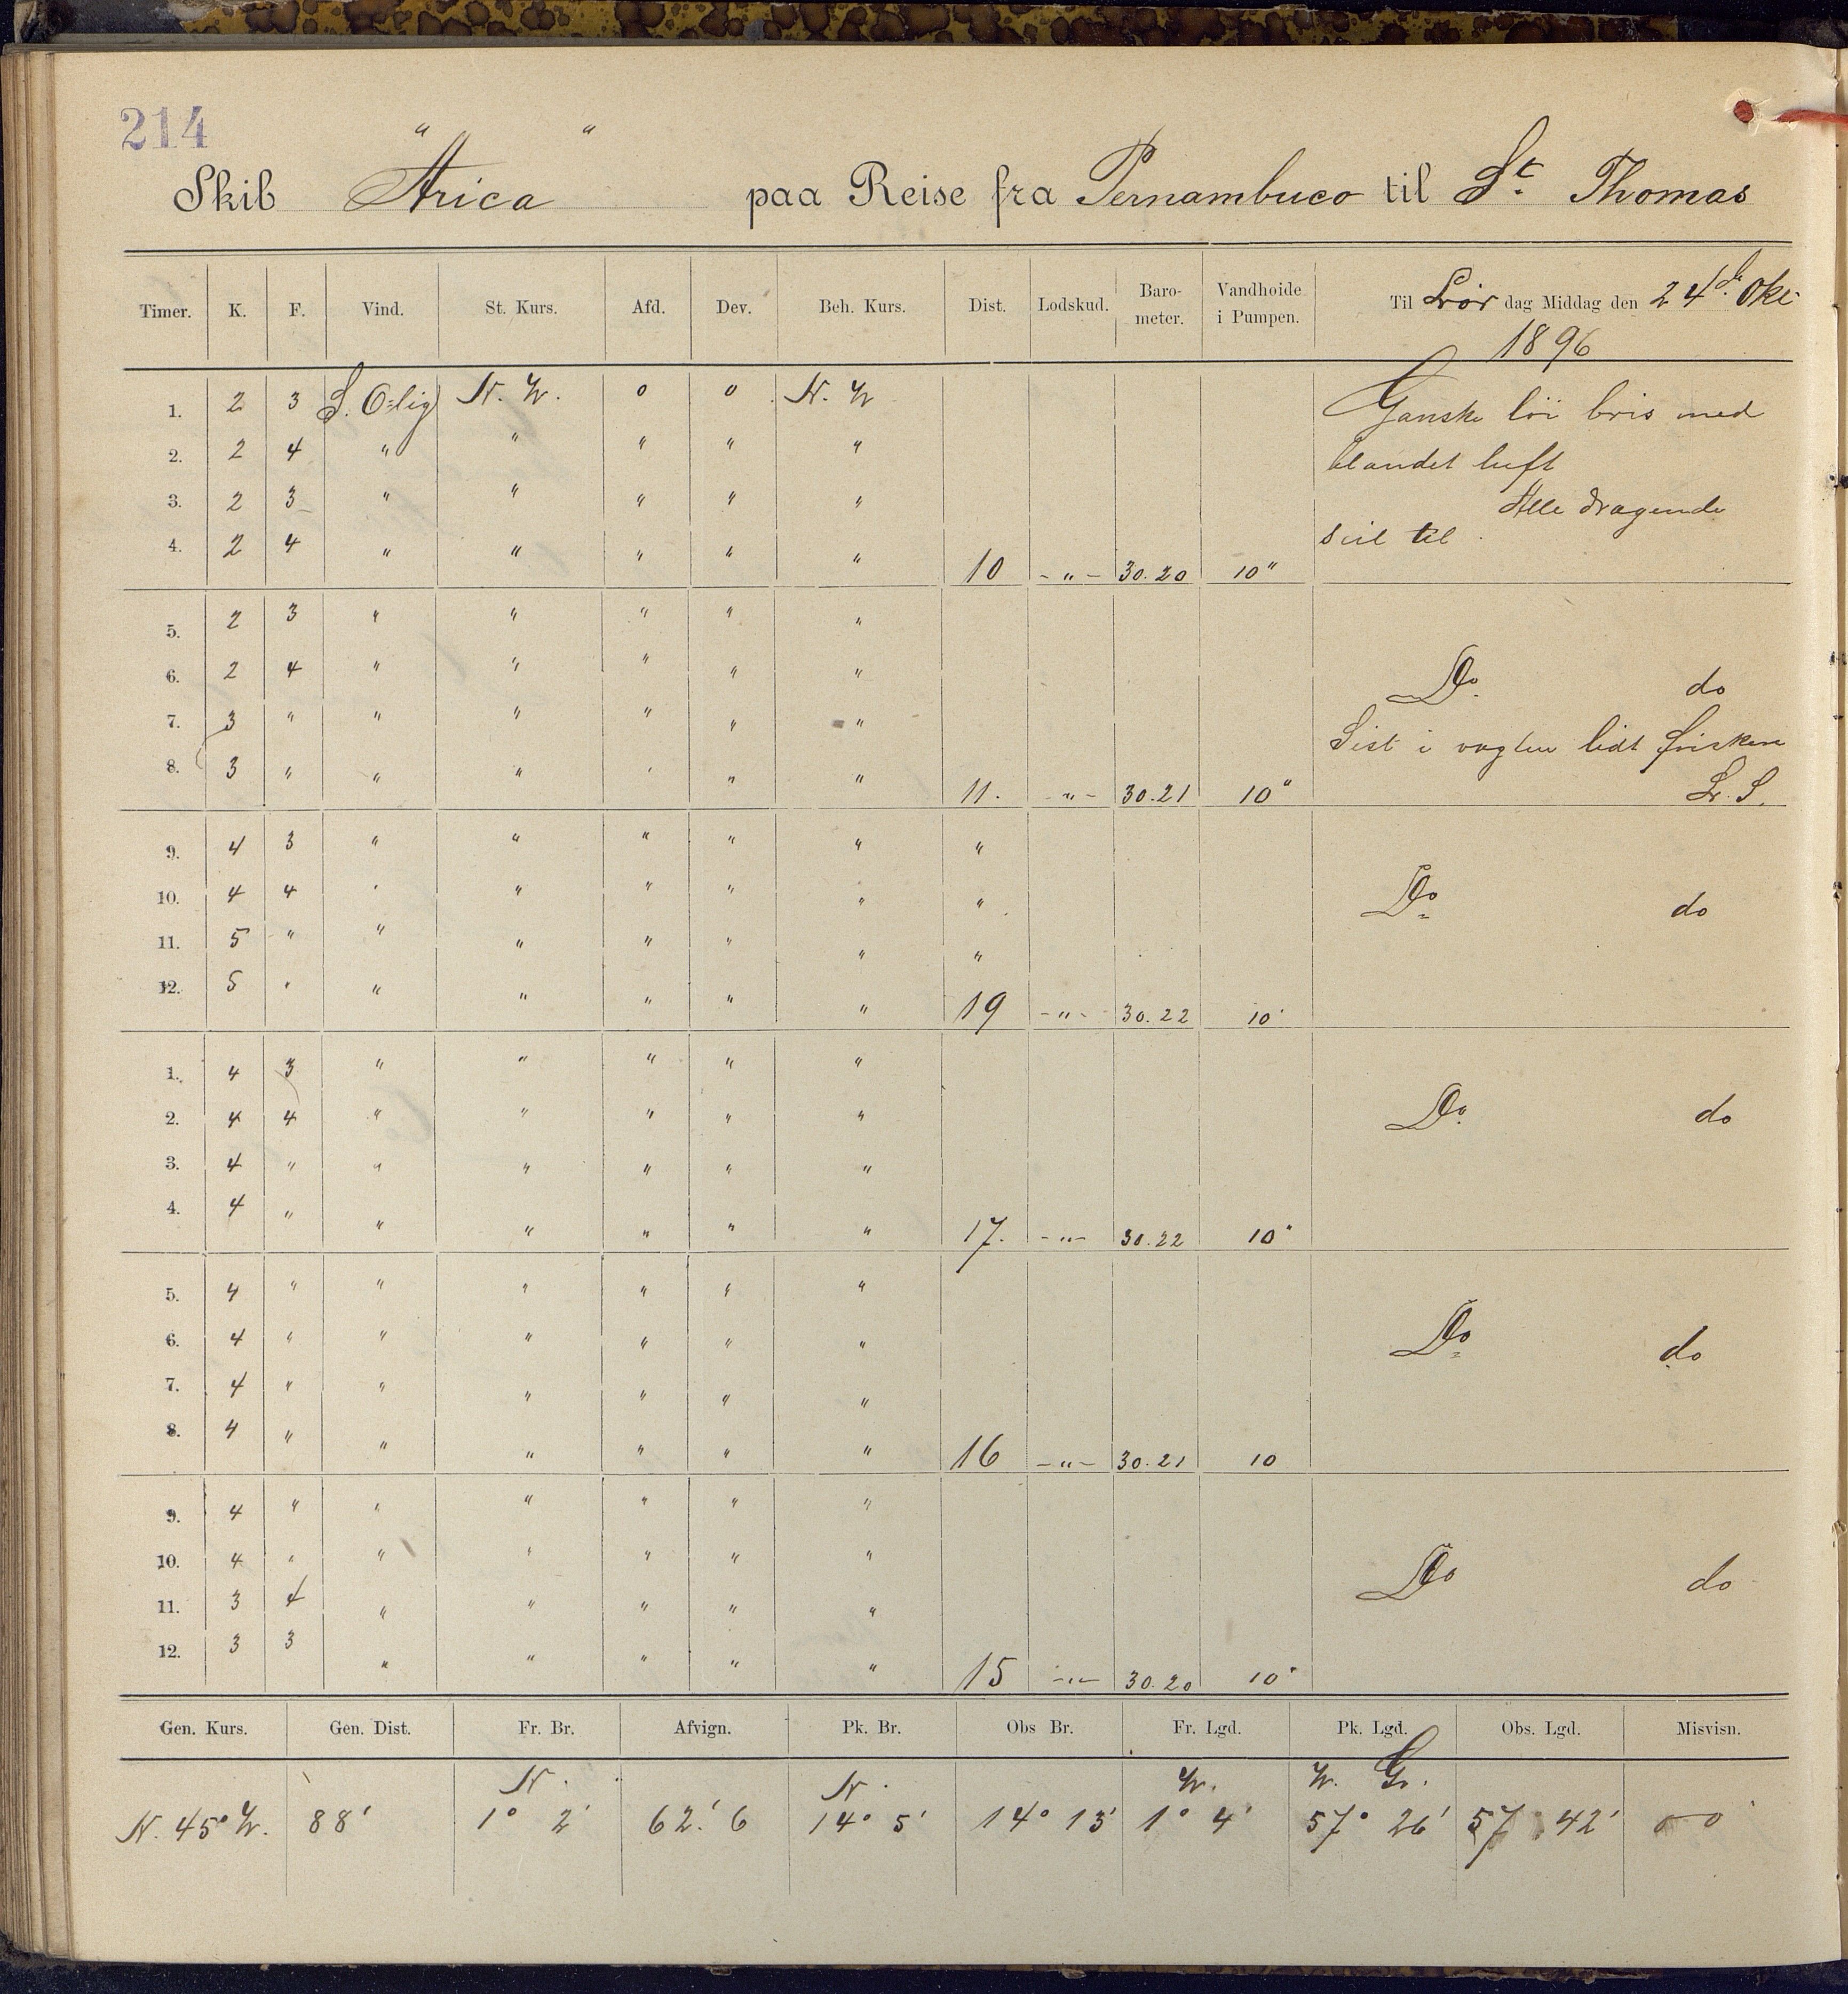 214
" "
Skib Arica paa Reise fra Pernambuco til St. Thomas
Timer. K. F. Vind. St. Kurs. Afd. Dev. Beh. Kurs. Dist. Lodskud. Baro-meter. Vandhoide i Pumpen. Til Lør dag Middag den 24de Okt
1896
1. 2 3 S. O=lig N. W. 0 0 N. W Ganske löi bris med
2. 2 4 " " " " " blandet luft
3. 2 3 " " " " " Alle dragende
4. 2 4 " " " " " 10 - " - 30.20 10" seil til.
5. 2 3 " " " " "
6. 2 4 " " " " " Do. do
7. 3 " " " " " " Sist i vagten lidt friskere
8. 3 " " " " " " 11. - " - 30.21 10" L. S.
9. 4 3 " " " " " "
10. 4 4 " " " " " " Do do
11. 5 " " " " " " "
12. 5 " " " " " " 19 - " - 30.22 10"
1. 4 3 " " " " "
2. 4 4 " " " " " Do. do
3. 4 " " " " " "
4. 4 " " " " " " 17. - " - 30.22 10"
5. 4 " " " " " "
6. 4 " " " " " " Do do
7. 4 " " " " " "
8. 4 " " " " " " 16 - " - 30.21 10
9. 4 " " " " " "
10. 4 " " " " " " Do do
11. 3 4 " " " " "
12. 3 3 " " " " " 15 - " - 30.20 10"
Gen. Kurs. Gen. Dist. Fr. Br. Afvign. Pk. Br. Obs Br. Fr. Lgd. Pk. Lgd. Obs. Lgd. Misvisn.
N. N. W. W. Gr.
N. 45° W. 88' 1° 2' 62.'6 14° 5' 14° 13' 1° 4' 57° 26' 57° 42' 0 0